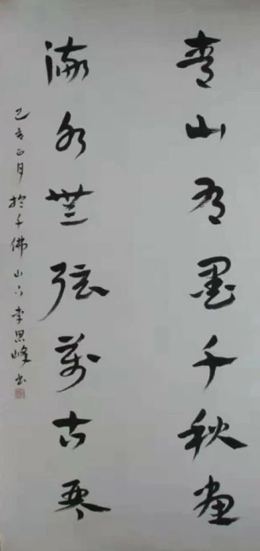 青山有墨千秋画
流水无弦万古琴
己亥正月於千佛山下李思峰书